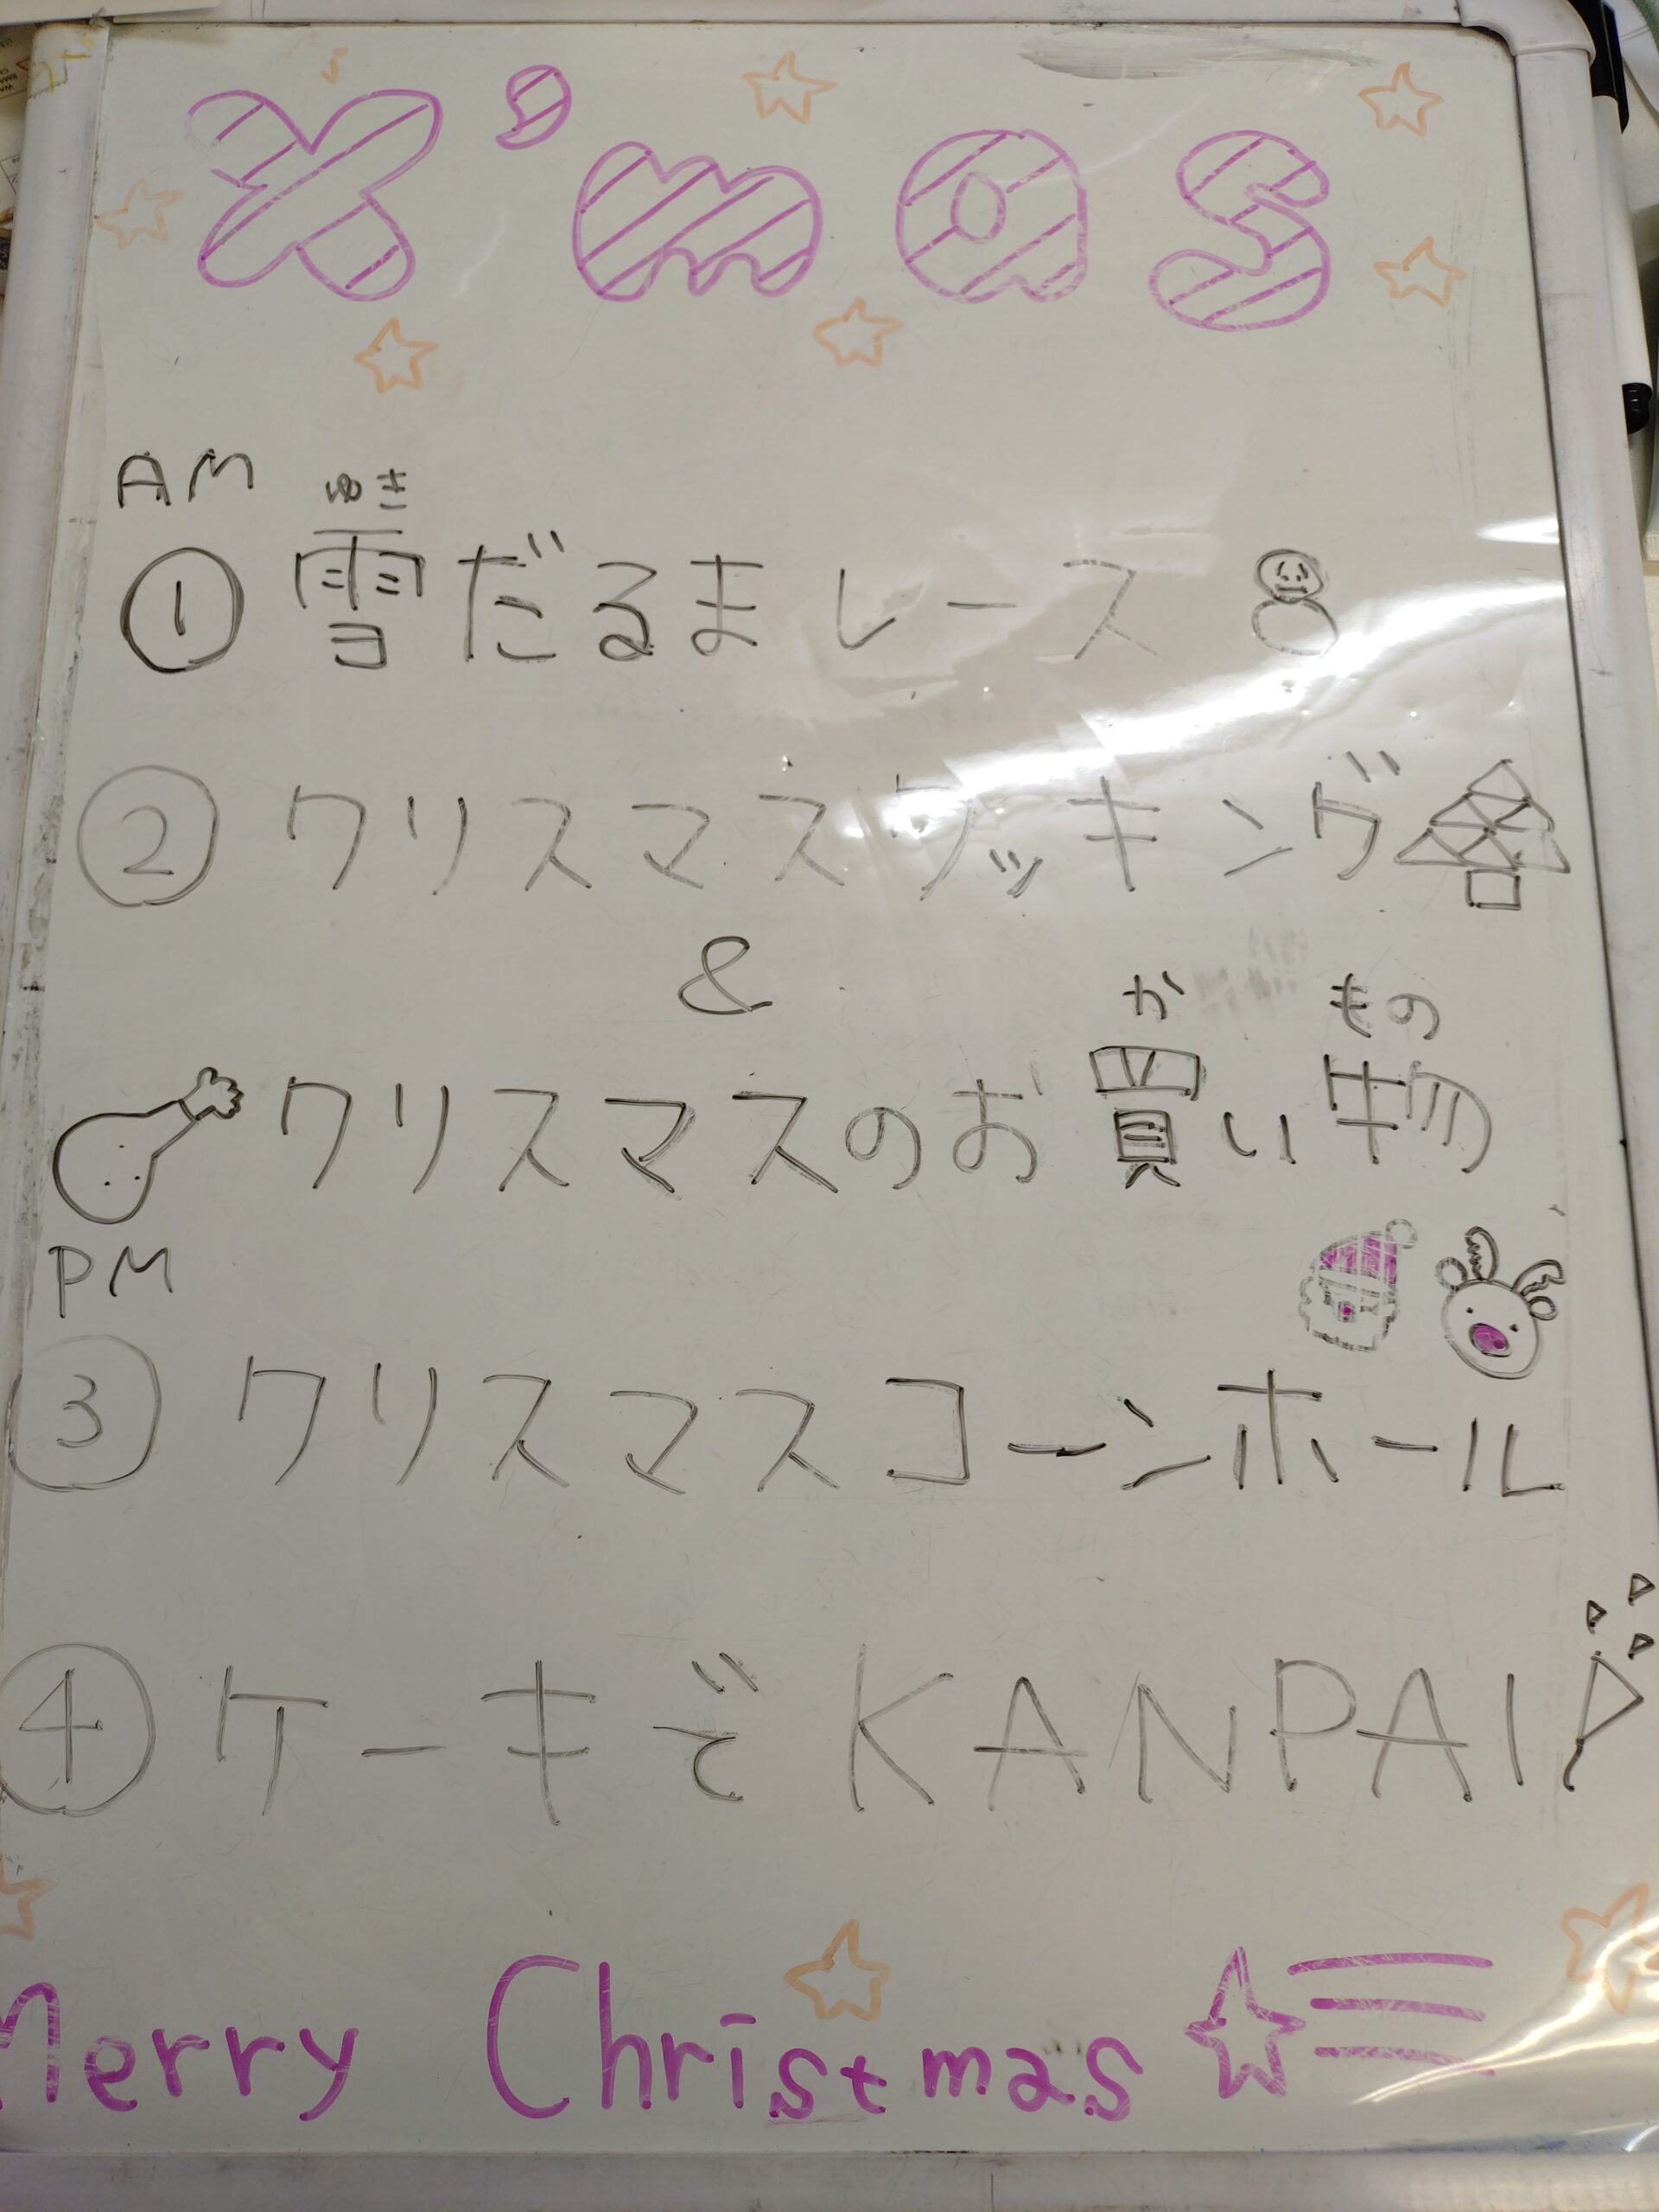 X'mas
AM
ゆき
① 雪だるまレース
② クリスマスクッキング
&
か もの
クリスマスのお買い物
PM
③ クリスマスコーンホール
④ ケーキで KANPAI
Merry Christmas